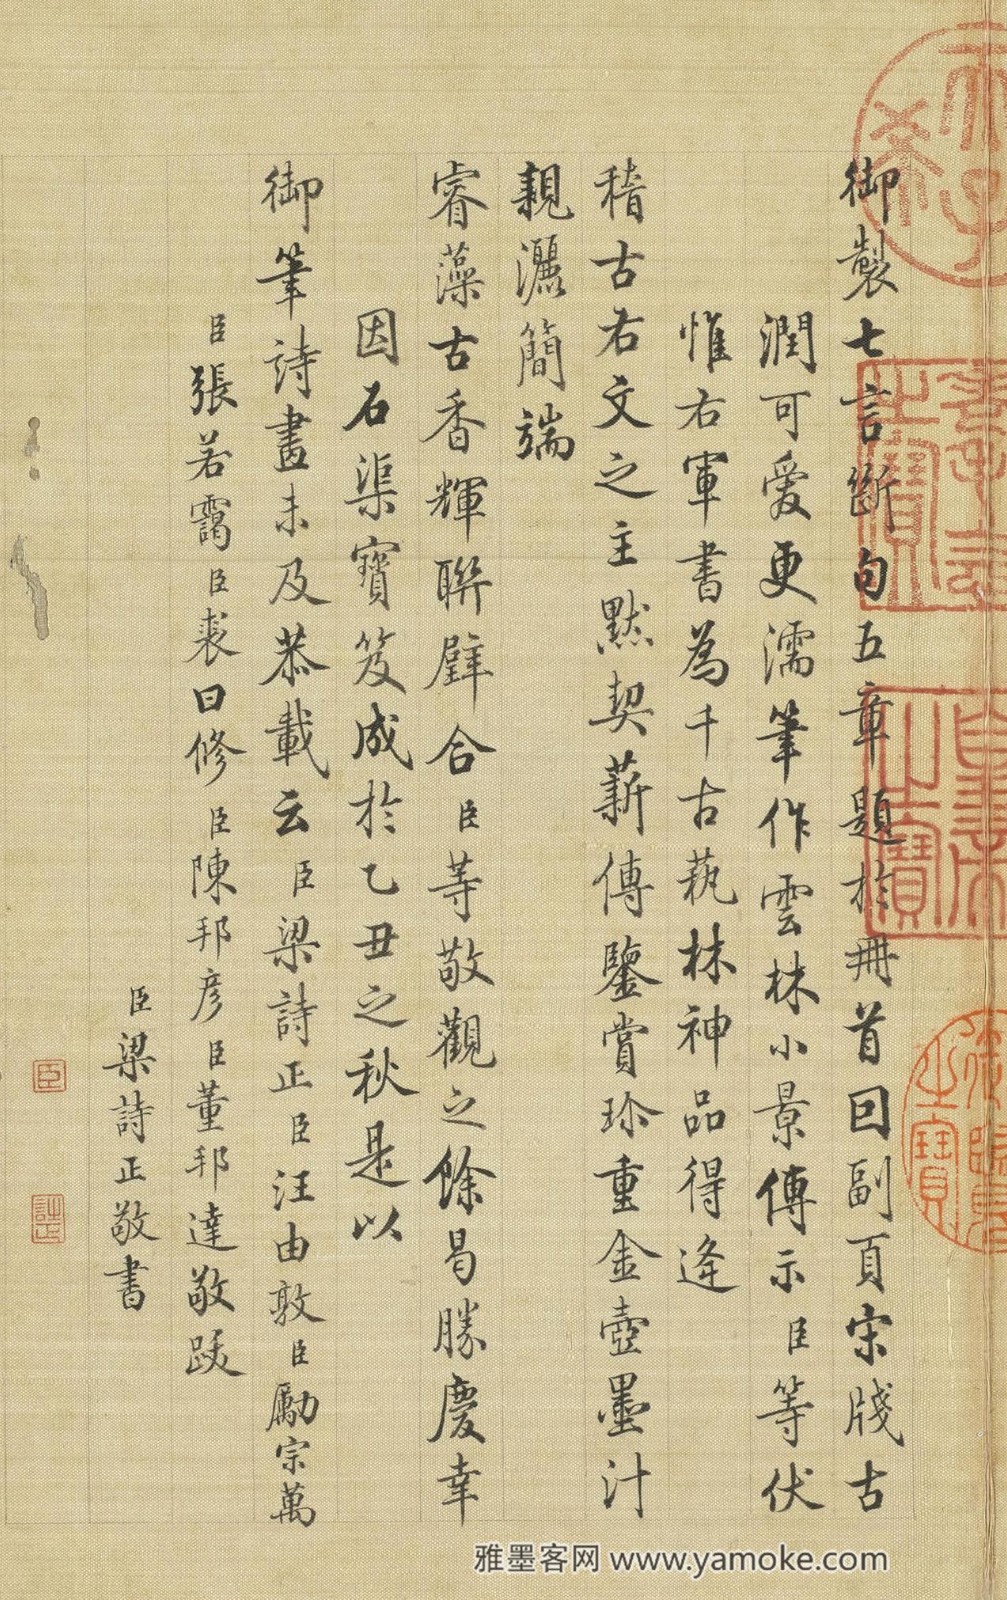 御製七言斷句五章題於冊首回副頁宋牋古
潤可愛更濡筆作雲林小景傳示臣等伏
惟右軍書為千古萟林神品得逢
稽古右文之主默契薪傳鑒賞珍重金壺墨汁
親灑簡端
睿藻古香輝聯璧合臣等敬觀之餘曷勝慶幸
因石渠寶笈成於乙丑之秋是以
御筆詩畫未及恭載云臣梁詩正臣汪由敦臣勵宗萬
臣張若靄臣裘曰修臣陳邦彥臣董邦達敬跋
臣梁詩正敬書
臣
雅墨客网 www.yamoke.com